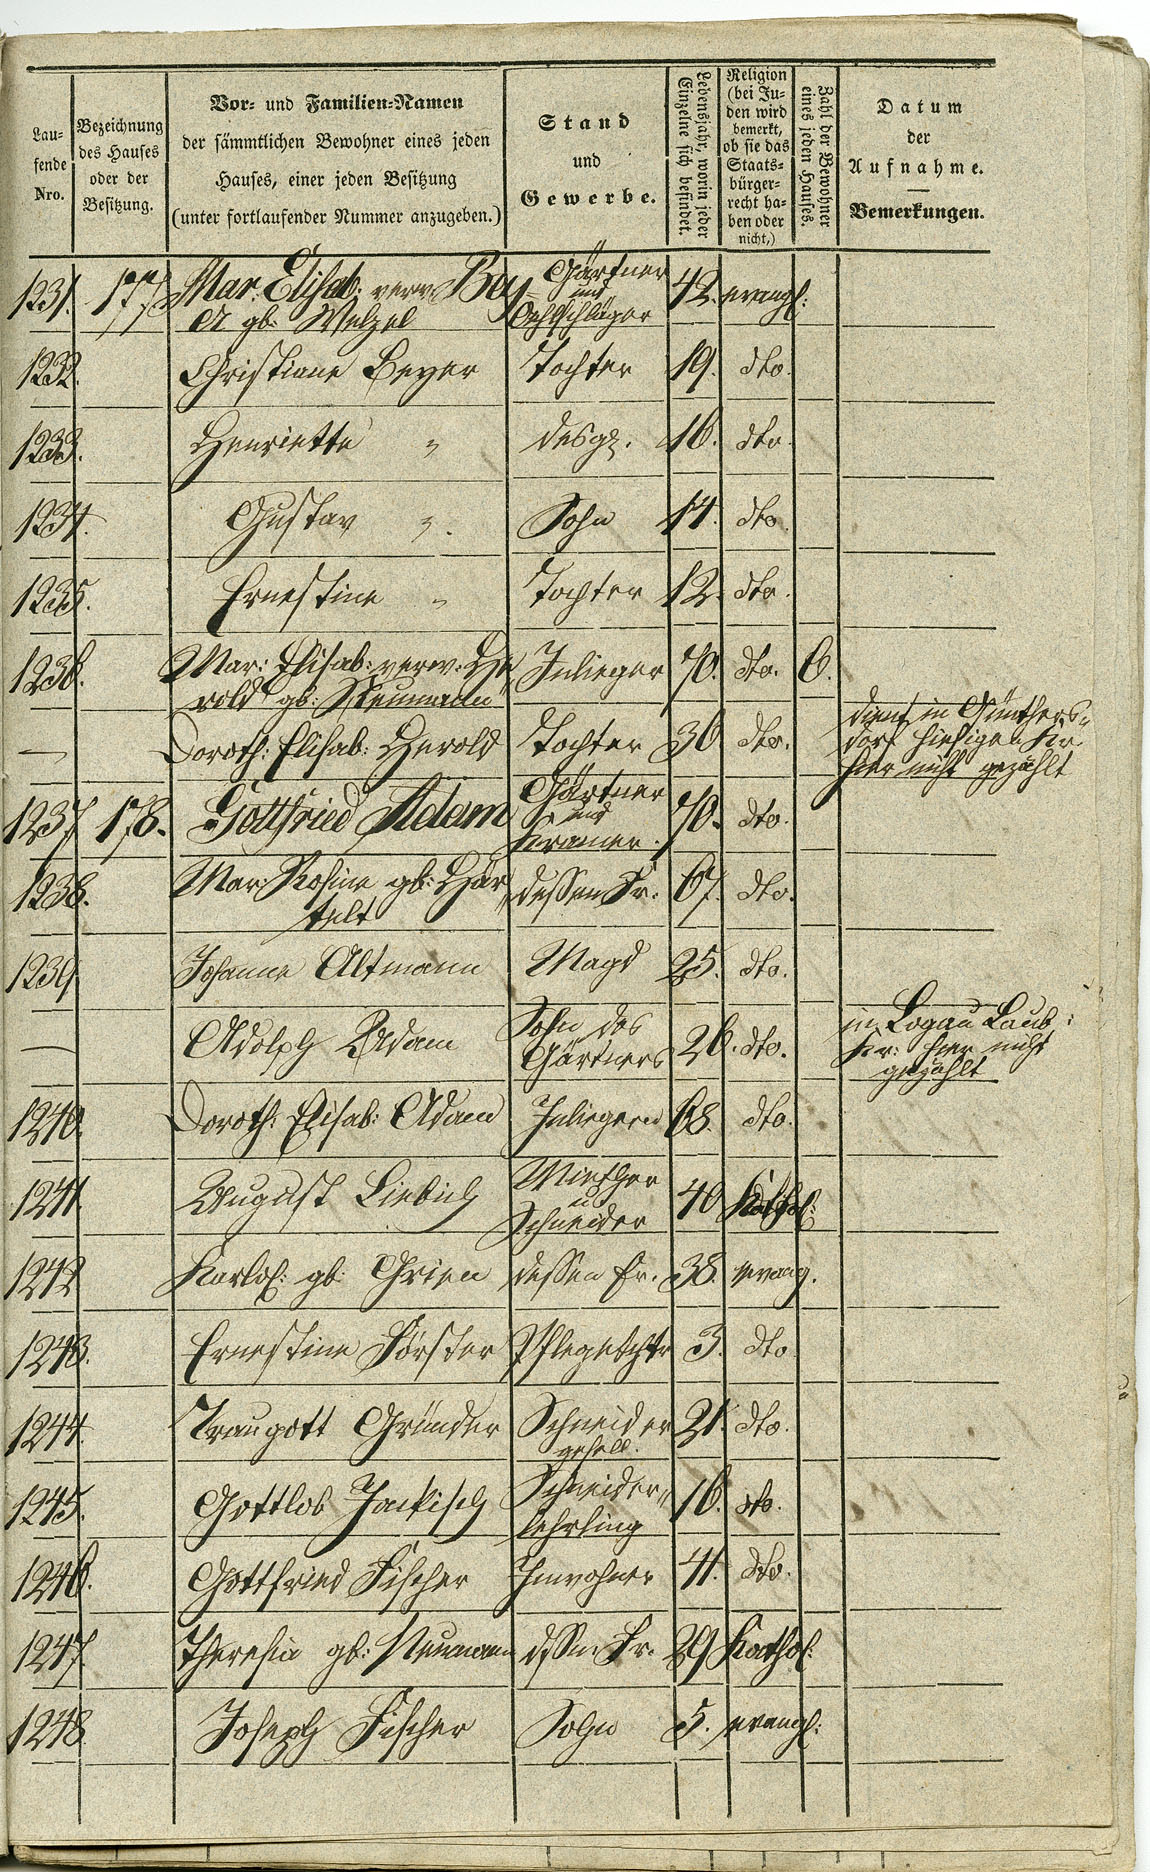 Lau-
fende
Nro.
Bezeichnung
des Hauses
oder der
Besitzung.
Vor- und Familien-Namen
der sämmtlichen Bewohner eines jeden
Hauses, einer jeden Besitzung
(unter fortlaufender Nummer anzugeben.)
Stand
und
Gewerbe.
Lebensjahr, worin jeder
Einzelne sich befindet.
Religion
(bei Ju-
den wird
bemerkt,
ob sie das
Staats-
bürger-
recht ha-
ben oder
nicht,)
Zahl der Bewohner
eines jeden Hauses.
Datum
der
Aufnahme.
Bemerkungen.
1231. 177. Mar: Elisab: verw: Bey Gärtner und 42. evangl:
er gb: Welzel Oehlschläger
1232. Christiane Beyer Tochter 19. dto.
1233. Henriette " desgl. 16. dto.
1234. Gustav ". Sohn 14. dto.
1235. Ernestine " Tochter 12. dto.
1236. Mar: Elisab: verw: He Inlieger 70. dto. 6.
rold gb: Neumann
— Doroth: Elisab: Herold Tochter 36 dto. dient in Günthers-
dorf hiesigen Kr.
hier nicht gezählt
1237. 178. Gottfried Adam Gärtner und 70. dto.
Kramer.
1238. Mar: Rosine gb: Här dessen Fr. 67. dto.
telt
1239 Johanne Altmann Magd 25. dto.
— Adolph Adam Sohn des 26. dto. in Logau Laub:
Gärtners Kr: hier nicht
gezählt
1240. Doroth: Elisab: Adam Inliegern 68. dto.
1241. August Liebich Miether 40 Kathol:
u
Schneider
1242 Karlof: gb: Grien dessen Fr. 38. evang.
1243. Ernestine Förster Pflegetchtr 3. dto
1244. Traugott Gründer Schneider 21. dto.
gesell.
1245. Gottlob Jackisch Schneider- 16. dto.
lehrling
1246. Gottfried Fischer Inwohner 41. dto.
1247. Theresia gb: Neumann dssen Fr. 29 Kathol:
1248. Joseph Fischer Sohn 5. evangl: